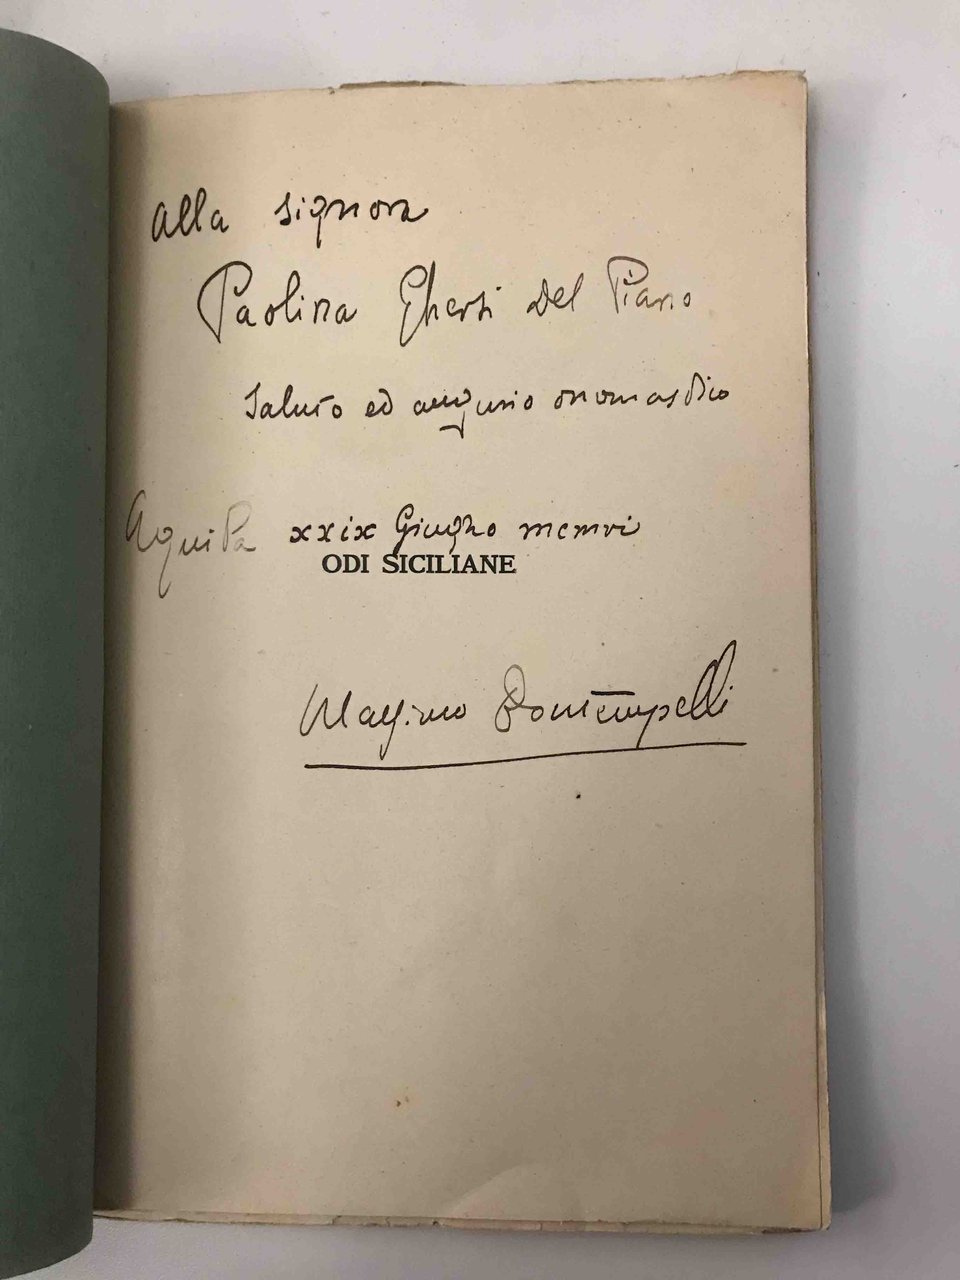 Alla signora
Paolina Ghersi Del Piano
saluto ed augurio onomastico
Aquila xxix Giugno mcmvi
ODI SICILIANE
Massimo Bontempelli